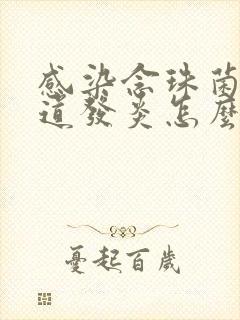 感染念珠菌
道發炎怎麼
憂起百歲